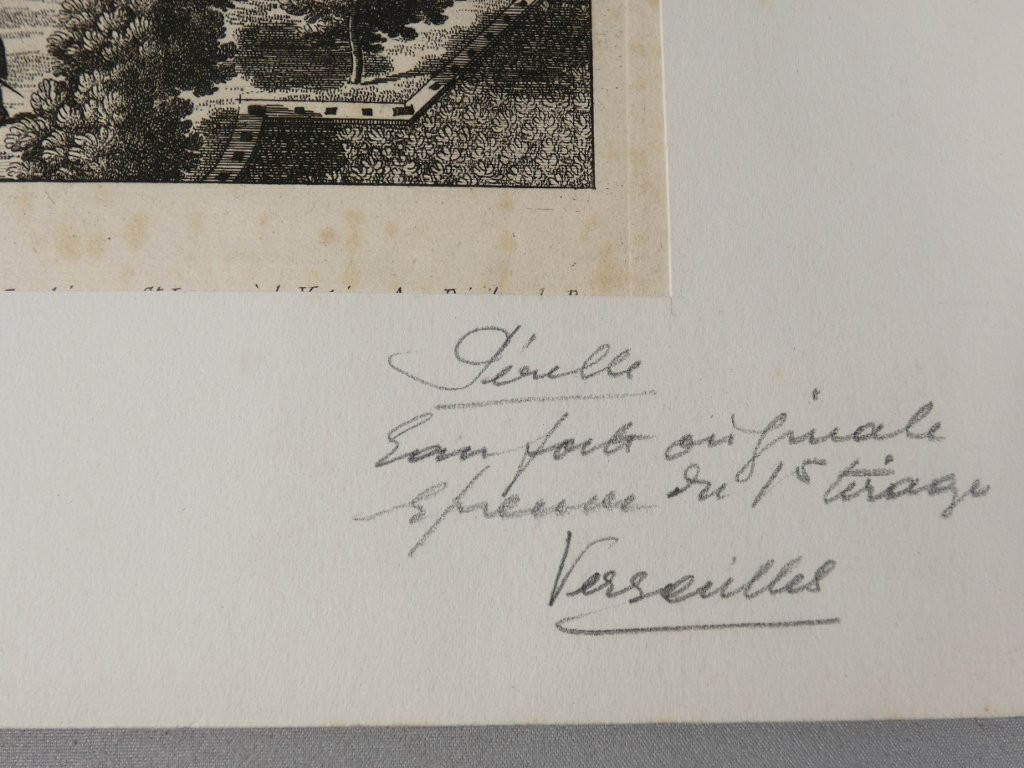 Pérelle
Eau forte originale
Epreuve du 1er tirage
Versailles